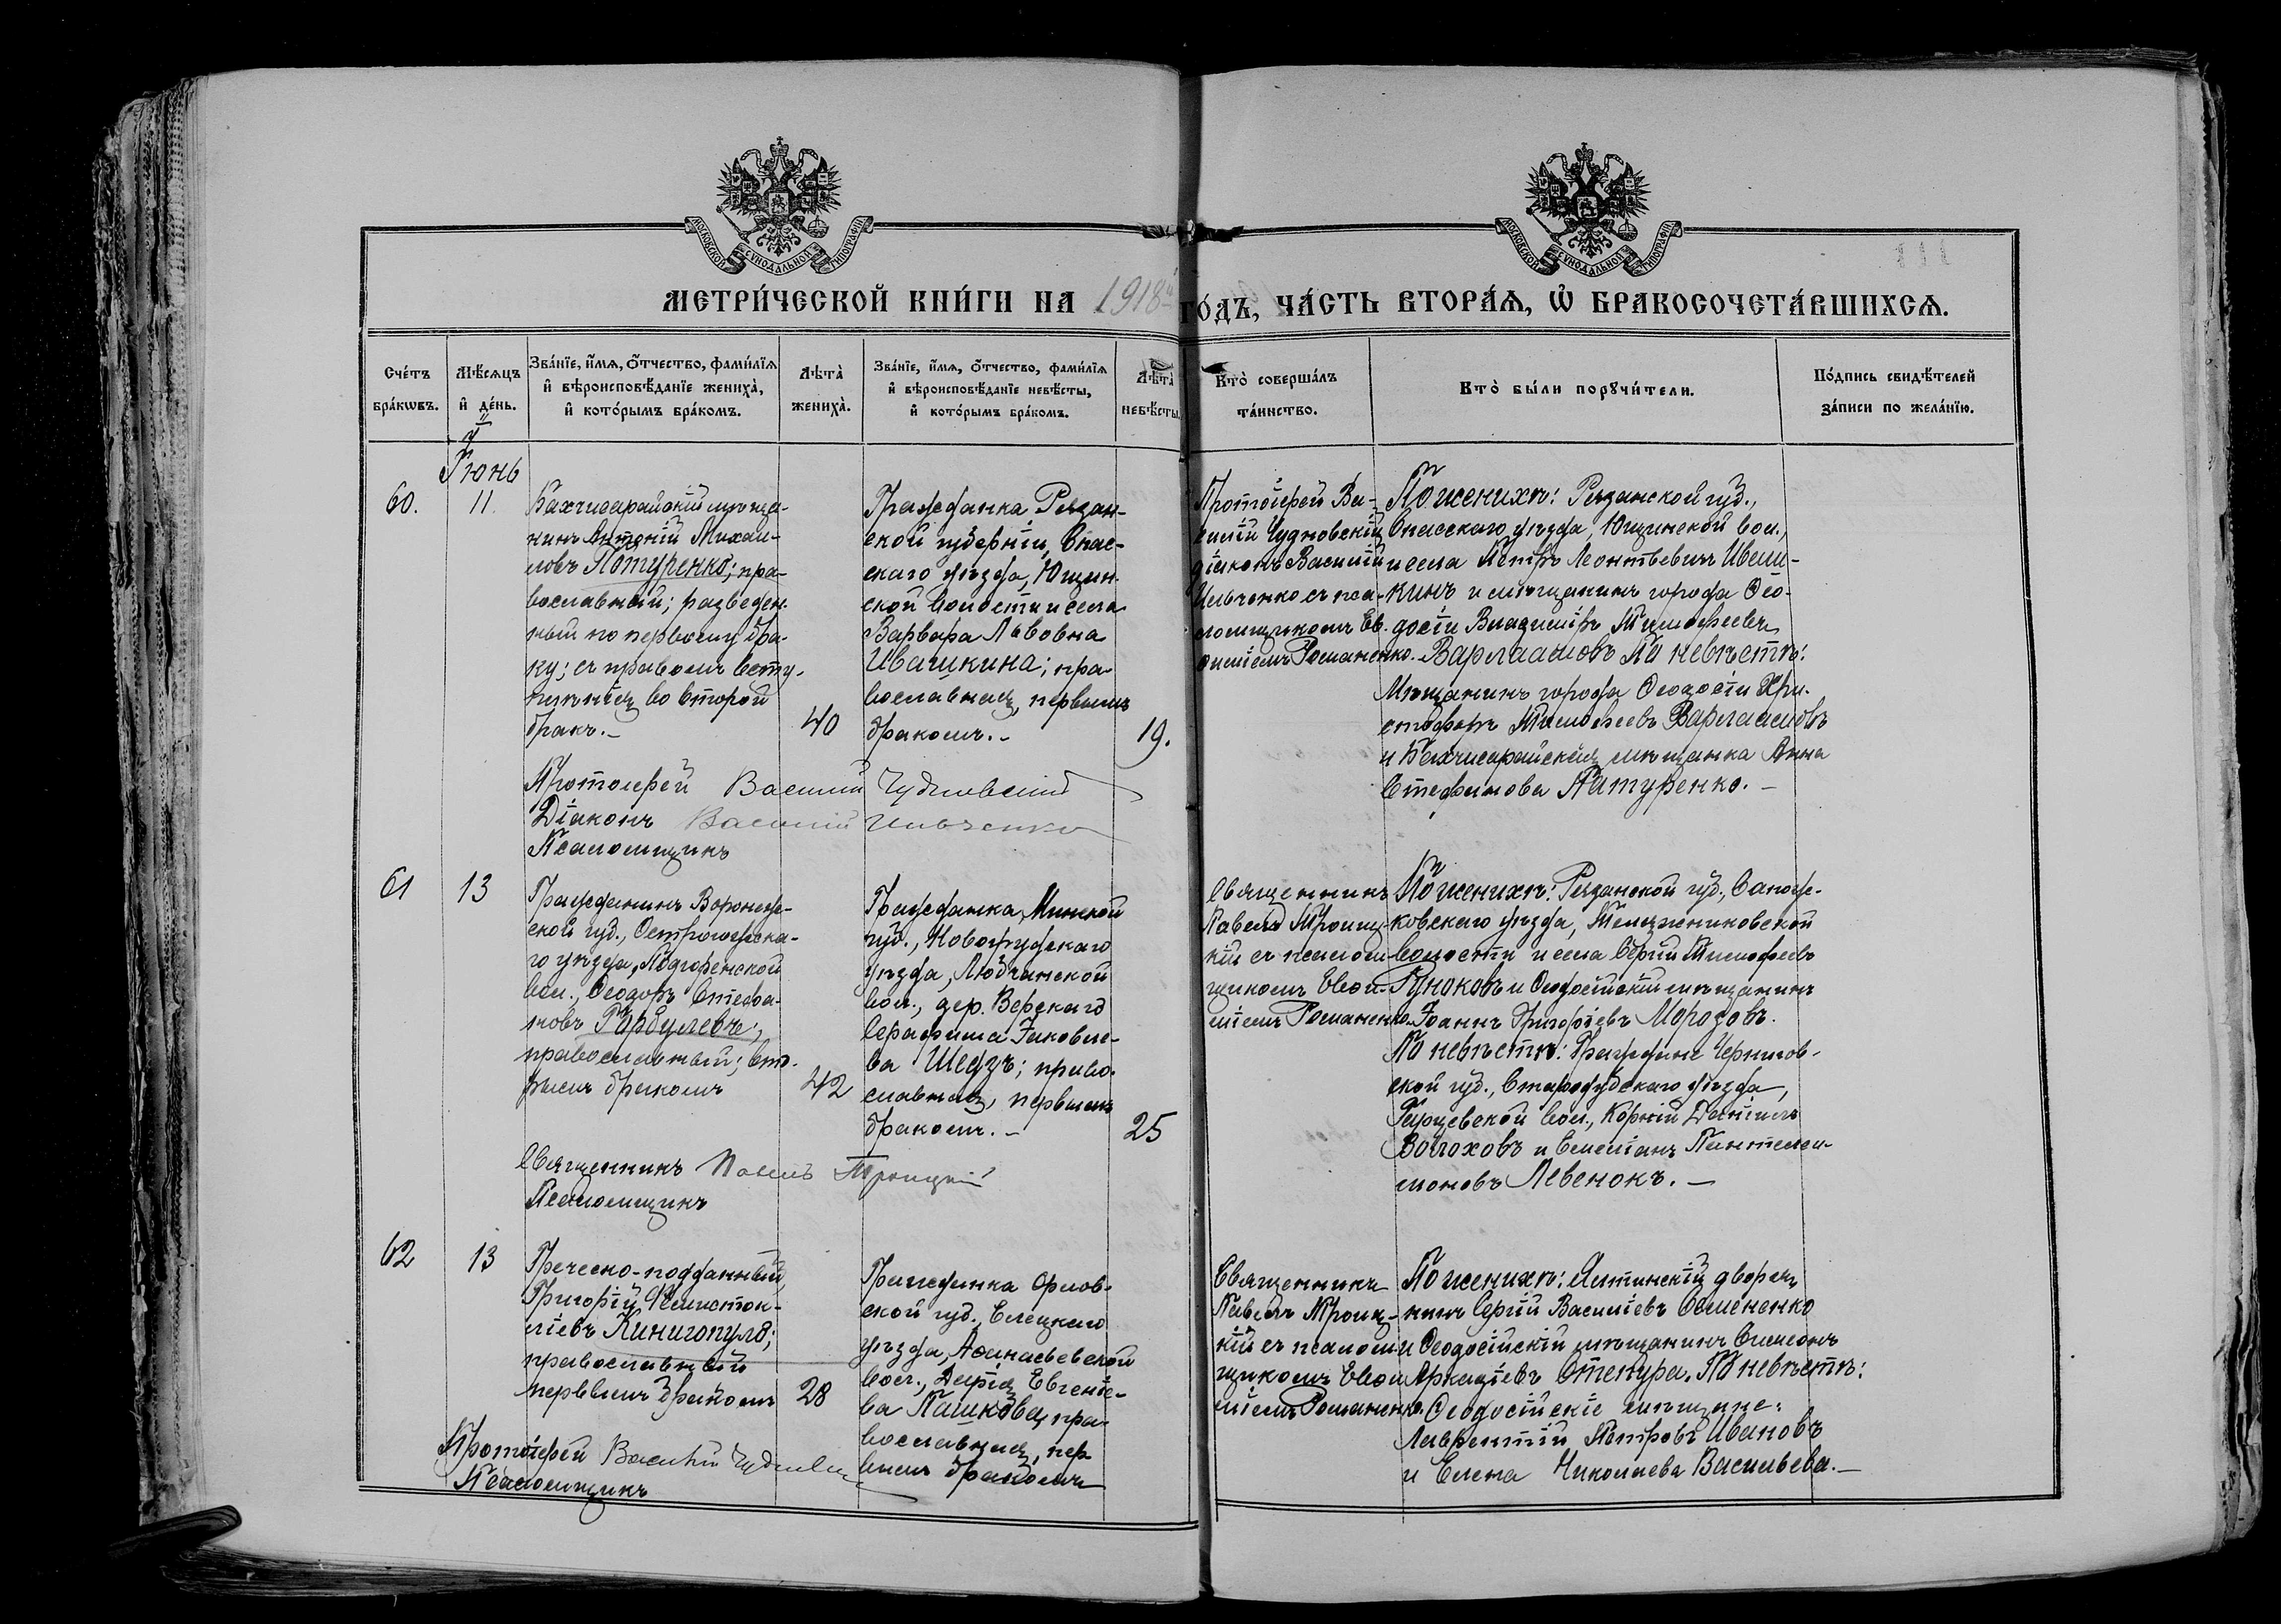 МОСКОВСКОЙ СУНОДАЛЬНОЙ ТИПОГРАФІИ
МОСКОВСКОЙ СУНОДАЛЬНОЙ ТИПОГРАФІИ
МЕТРИ́ЧЕСКОЙ КНИ́ГИ НА 1918й ГО́ДЪ, ЧА́СТЬ ВТОРА́Я, Ѡ БРАКОСОЧЕТА́ВШИХСЯ.
Сче́тъ
бра́кѡвъ.
Мѣ́сяцъ
и҆ де́нь.
Зва́нїе, и҆́мя, ѻ҆́тчество, фами́лїя
и҆ вѣроисповѣ́данїе жениха̀,
и҆ кото́рымъ бра́комъ.
Лѣта̀
жениха̀.
Зва́нїе, и҆́мя, ѻ҆́тчество, фами́лїя
и҆ вѣроисповѣ́данїе невѣ́сты,
и҆ кото́рымъ бра́комъ.
Лѣта̀
невѣ́сты.
Кто̀ соверша́лъ
та́инство.
Кто̀ бы́ли порꙋчи́тели.
По́дпись свидѣ́телей
за́писи по жела́нїю.
Іюнь
60.
11.
Бахчисарайскій мѣща-
нинъ Антоній Михаи-
ловъ Потуренко; пра-
вославный; разведен-
ный по первому бра-
ку; съ правомъ всту-
пленія во второй
бракъ.-
40
Гражданка Рязан-
ской губерніи, Спас-
скаго уѣзда, Ющин-
ской волости и села
Варвара Львовна
Ивашкина; пра-
вославная, первымъ
бракомъ.-
19.
Протоіерей Ва-
силій Чудновскій
діаконъ Василій
Ильченко съ пса-
ломщикомъ Ев-
ѳиміемъ Романенко.
По женихѣ: Рязанской губ.,
Спасскаго уѣзда, Ющинской вол.,
и села Петръ Леонтьевичъ Иваш-
кинъ и мѣщанинъ города Ѳео-
досіи Владиміръ Тимоѳеевъ
Варлаамовъ По невѣстѣ:
Мѣщанинъ города Ѳеодосіи Хри-
стофоръ Тимоѳеевъ Варлаамовъ
и Бахчисарайская мѣщанка Анна
Стефанова Патуренко.-
Протоіерей Василій Чудновскій
Діаконъ Василій Ильченко
Псаломщикъ
61
13
Гражданинъ Воронеж-
ской губ., Острогожска-
го уѣзда, Подгоренской
вол., Ѳеодоръ Стефа-
новъ Гарбулевъ;
православный; вто-
рымъ бракомъ
42
Гражданка Минской
губ., Новогрудскаго
уѣзда, Любчанской
вол., дер.
Серафима Іаковле-
ва Шедзъ; право-
славная, первымъ
бракомъ.-
25
Священникъ
Павелъ Троиц-
кій съ псалом-
щикомъ Евѳи-
міемъ Романенко.
По женихѣ: Рязанской губ., Сапож-
ковскаго уѣзда,
волости и села Сергій Тимоѳеевъ
Гуноковъ и Ѳеодосійскій мѣщанинъ
Іоаннъ Григоріевъ Морозовъ.
По невѣстѣ: Граждане Чернигов-
ской губ., Стародубскаго уѣзда,
вол., Корній Даніилъ
Волоховъ и Емеліанъ Пантелеи-
моновъ Левенокъ.-
Священникъ Павелъ Троицкій
Псаломщикъ
62
13
Греческо-подданный
Григорій Ѳемисток-
ліевъ Кинигопуло;
православный
первымъ бракомъ
28
Гражданка Орлов-
ской губ., Елецкаго
уѣзда, Аѳанасьевской
вол., Дарія Евгеніе-
ва Пашкова, пра-
вославная, пер-
вымъ бракомъ
Священникъ
Павелъ Троиц-
кій съ псалом-
щикомъ Евѳи-
міемъ Романенко.
По женихѣ: Ялтинскій дворя-
нинъ Сергій Василіевъ Семененко
и Ѳеодосійскій мѣщанинъ Симеонъ
Аркадіевъ Стемпура. По невѣстѣ:
Ѳеодосійскіе мѣщане:
Лаврентій Петровъ Ивановъ
и Елена Николаева Васильева.-
Протоіерей Василій Чудновскій
Псаломщикъ